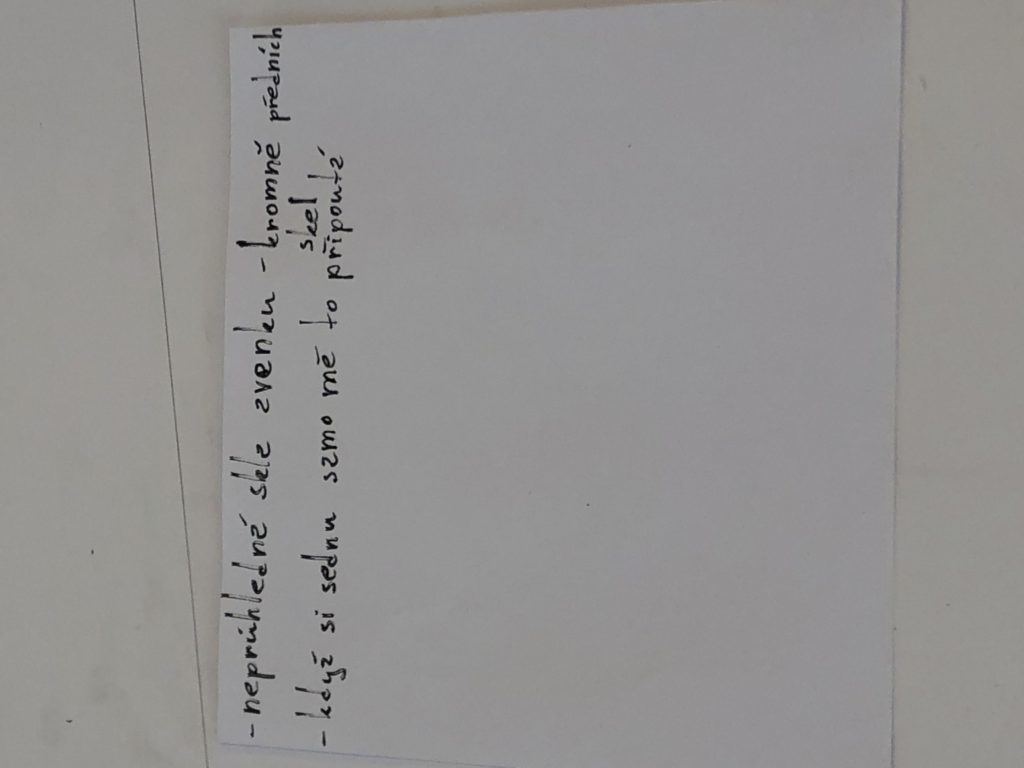 - neprůhledné skla zvenku - kromně předních
skel
- když si sednu samo mě to připoutá